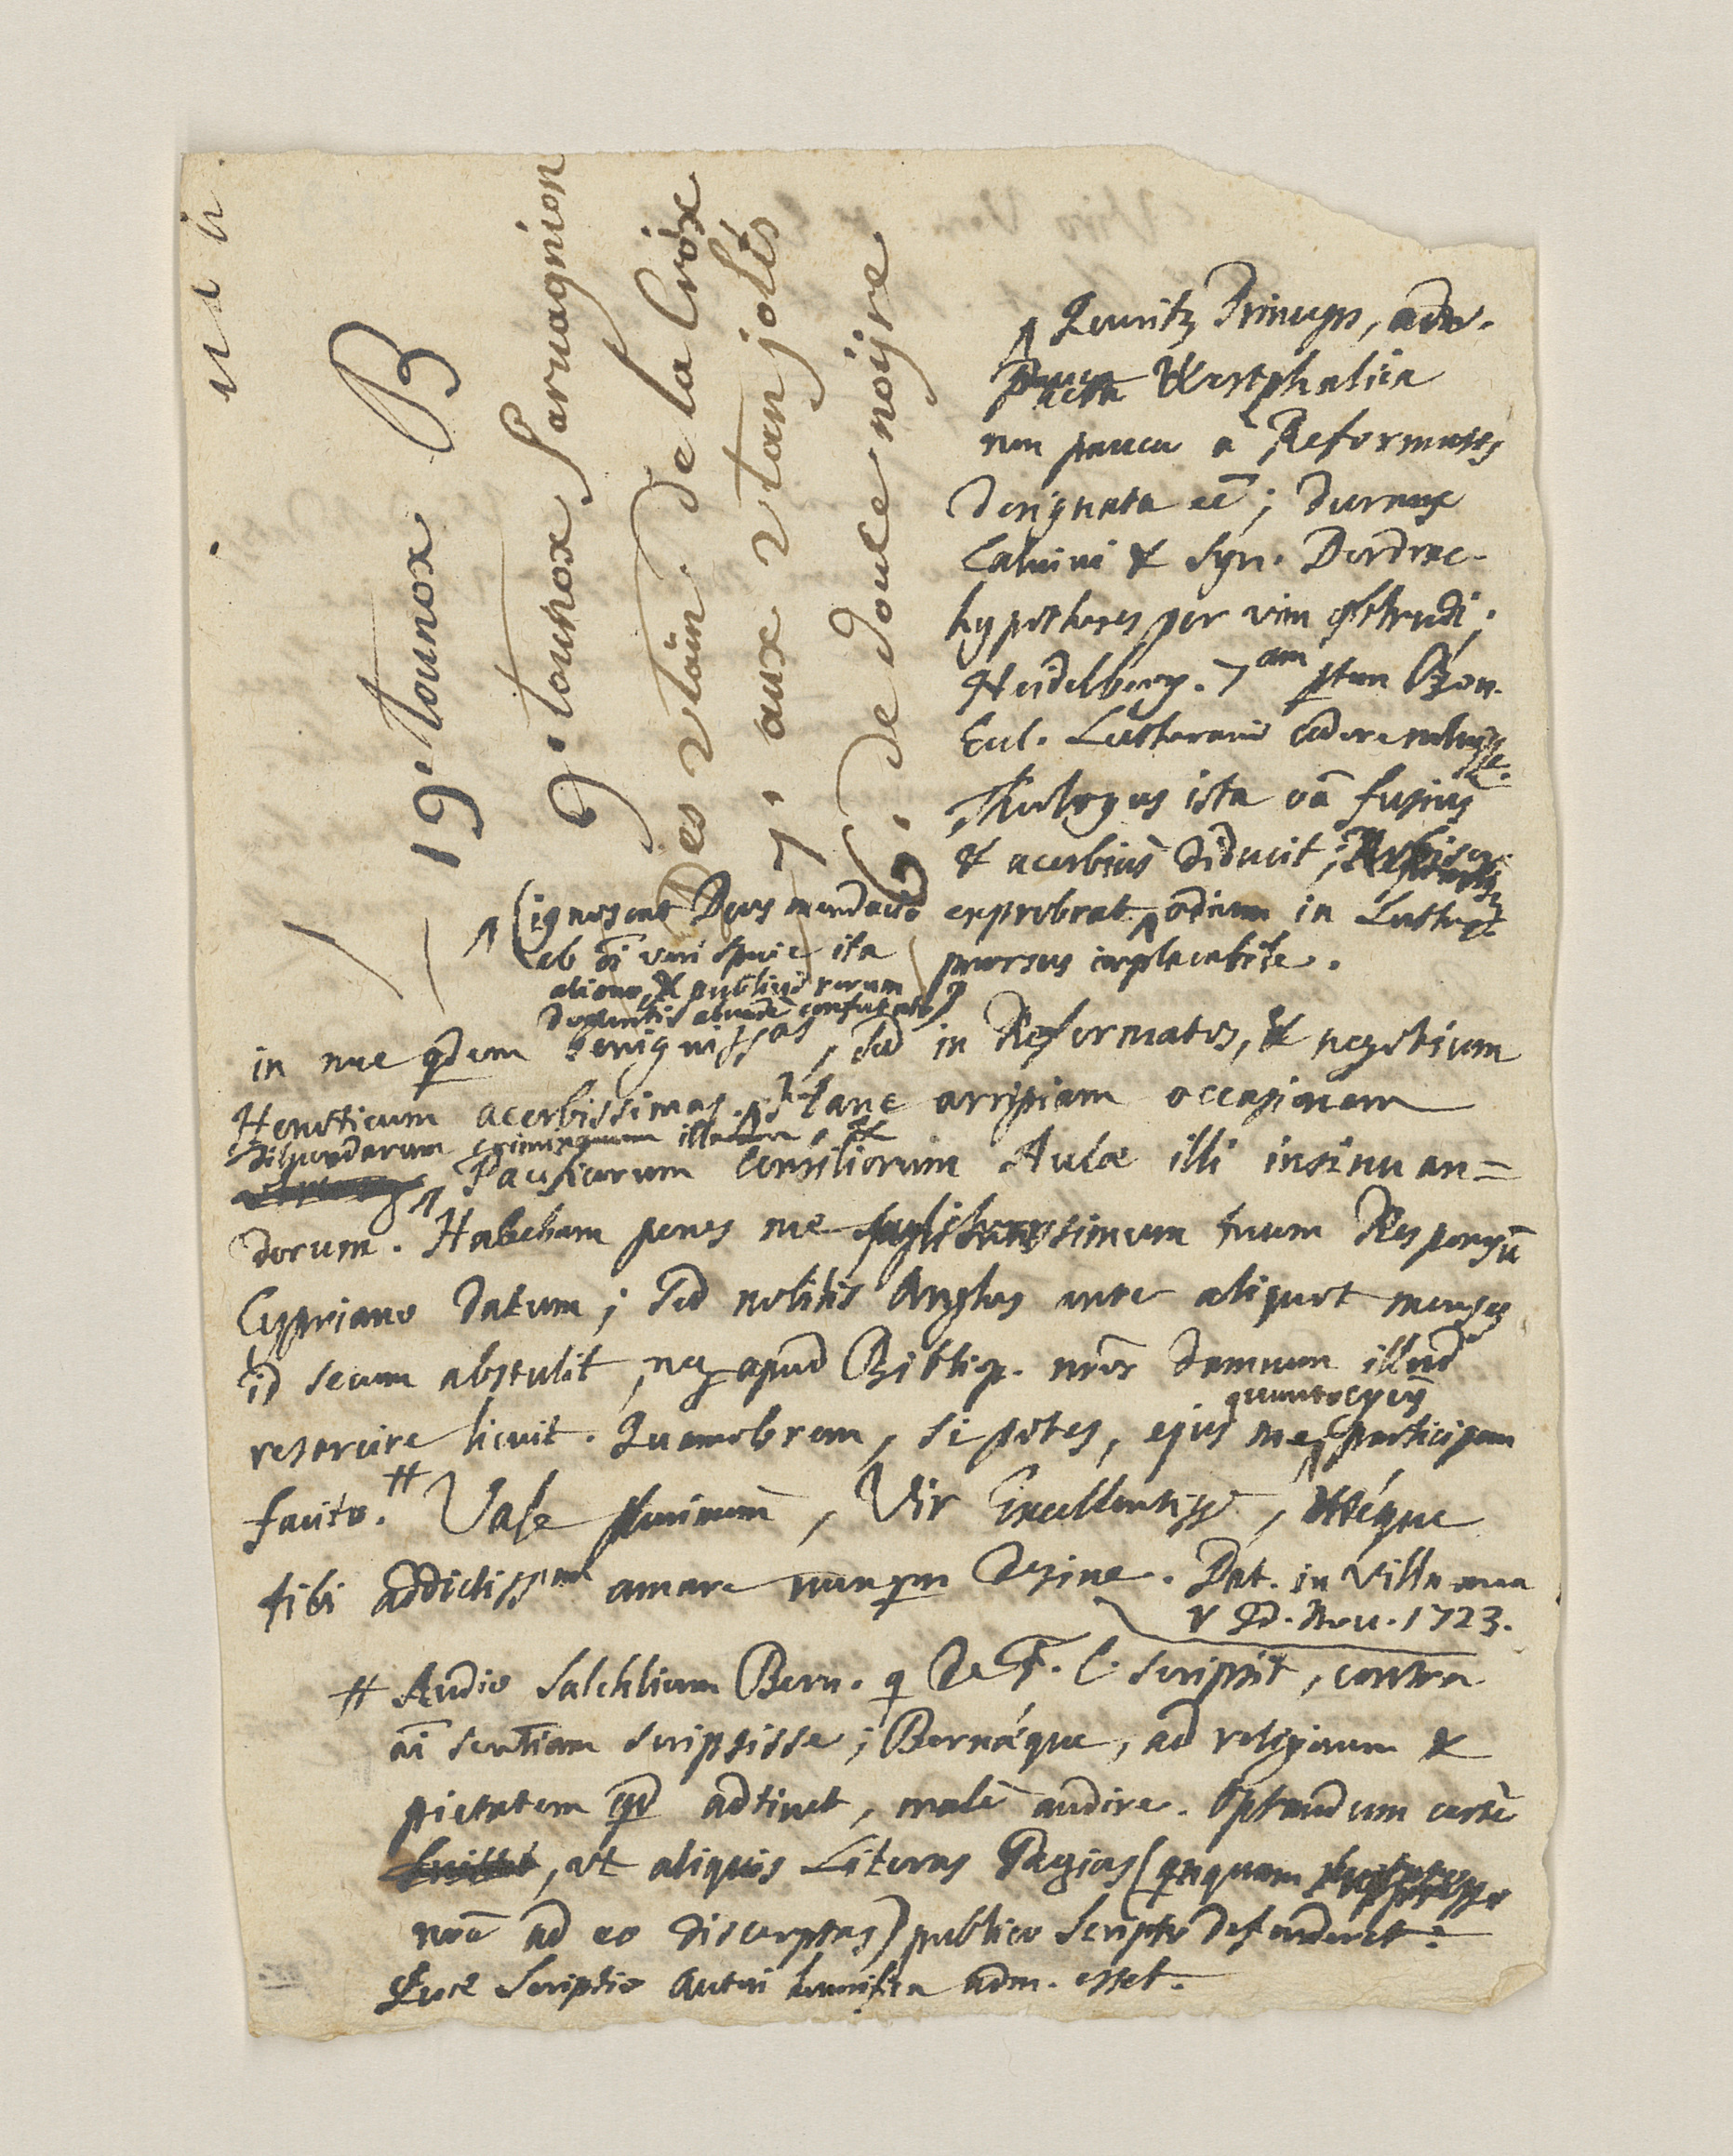 19. tounox B
9. tounox Sarvagnion
Des vtain. De la Croix
7. aux vtan jolis
6. De Douce noijre
Princeps, adv.
pacta Westphalica
non pauca à Reformatis
designata eē; durasq
Calvini & Syn. Dordrac.
hypotheses per vim obtrudi;
Heidelberg. 7am ptem Bon.
Eccl. Lutheranis cedere noluisse.
Theologus ista oā fusius
& acerbius diducit;
exprobrat ^ odium in Luther.
prorsus implacabile.
^ (ignoscat Deus mendacio
ab oī veri specie ita
alieno, & publicis rerum
documentis abunde confutato)
in me qdem benignissas, sed in Reformatos, & negotium
Henoticum acerbissimas. ^ Hanc arripiam occasionem
diluendarum criminationum illarum, &
^ Pacificorum Consiliorum Aulæ illi insinuan=
dorum. Habebam penes me tuum Responsū
Cypriano datum; sed nobilis Anglus ante aliquot menses
id secum abstulit, neq apud Bibliop. nros damnum illud
quantocyus
resarcire licuit. Quamobrem, si potes, ejus me ^ participem
facito. # Vale plurimum, Vir Excellentiss, méque
tibi addictissum amare nunqm desine. Dat. in Villa mea
V Id. Nov. 1723.
# Audio Salchlium Bern. q de F. C. scripsit, contra
aī sententiam scripsisse; Bernæque, ad religionem &
pietatem qd adtinet, malè audire. Optandum certè
, vt aliquis Literas Pagias (qnquam
ad eo discerptas) publico Scripto defenderet:
Scriptio Autori honifica adm. esset.